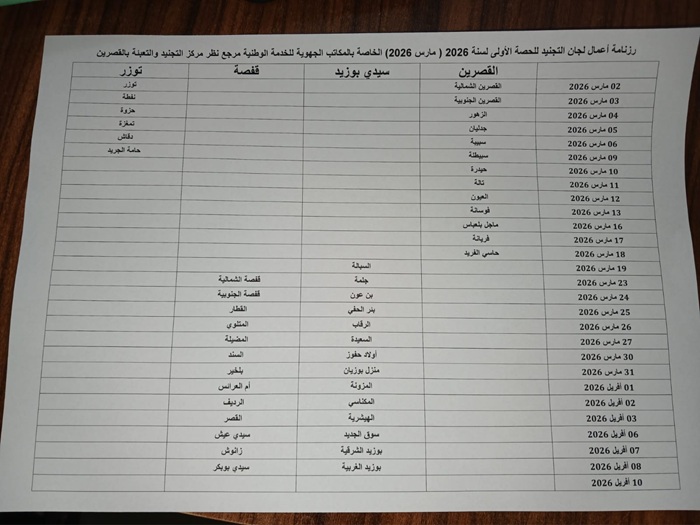 رزنامة أعمال لجان التجنيد للحصة الأولى لسنة 2026 ( مارس 2026) الخاصة بالمكاتب الجهوية للخدمة الوطنية مرجع نظر مركز التجنيد والتعبئة بالقصرين
القصرين سيدي بوزيد قفصة توزر
02 مارس 2026 القصرين الشمالية توزر
03 مارس 2026 القصرين الجنوبية نفطة
04 مارس 2026 الزهور حزوة
05 مارس 2026 جدليان تمغزة
06 مارس 2026 سبيبة دقاش
09 مارس 2026 سبيطلة حامة الجريد
10 مارس 2026 حيدرة
11 مارس 2026 تالة
12 مارس 2026 العيون
13 مارس 2026 فوسانة
16 مارس 2026 ماجل بلعباس
17 مارس 2026 فريانة
18 مارس 2026 حاسي الفريد
19 مارس 2026 السبالة
23 مارس 2026 جلمة قفصة الشمالية
24 مارس 2026 بن عون قفصة الجنوبية
25 مارس 2026 بئر الحفي القطار
26 مارس 2026 الرقاب المتلوي
27 مارس 2026 السعيدة المضيلة
30 مارس 2026 أولاد حفوز السند
31 مارس 2026 منزل بوزيان بلخير
01 أفريل 2026 المزونة أم العرائس
02 أفريل 2026 المكناسي الرديف
03 أفريل 2026 الهيشرية القصر
06 أفريل 2026 سوق الجديد سيدي عيش
07 أفريل 2026 بوزيد الشرقية زانوش
08 أفريل 2026 بوزيد الغربية سيدي بوبكر
10 أفريل 2026